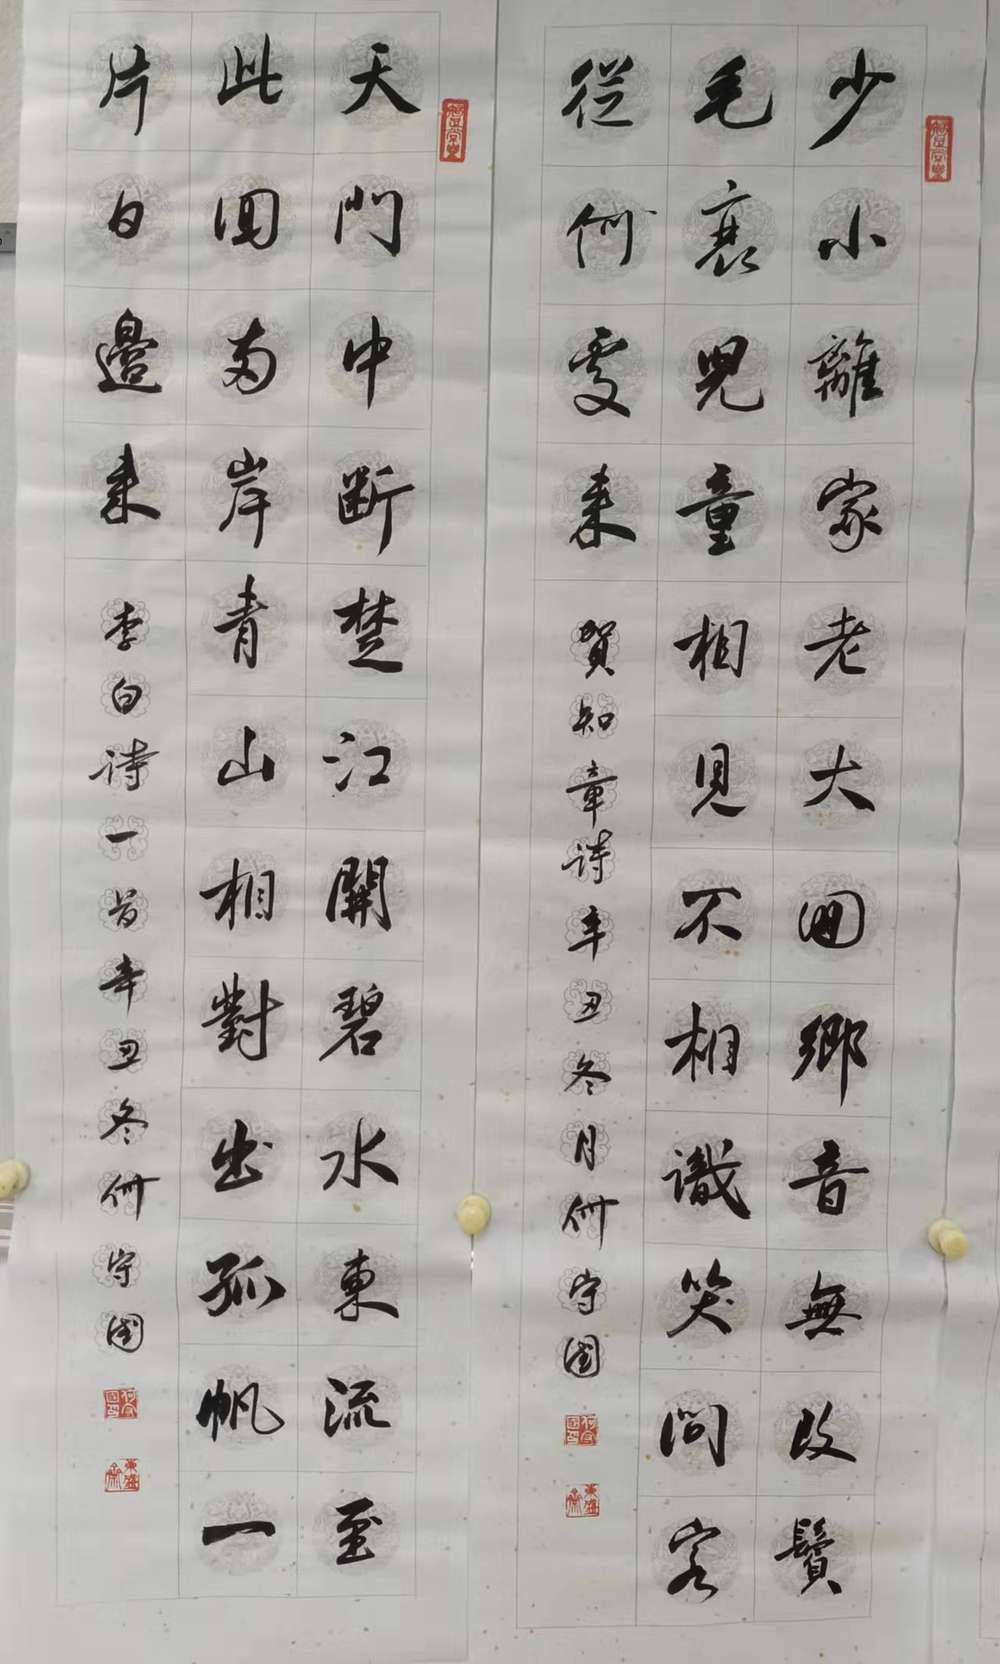 少小離家老大回鄉音無改鬢
毛衰兒童相見不相識笑問客
從何處来
賀知章詩辛丑冬月何守國
天門中断楚江開碧水東流至
此回兩岸青山相對出孤帆一
片日邊来
李白詩一首辛丑冬何守國